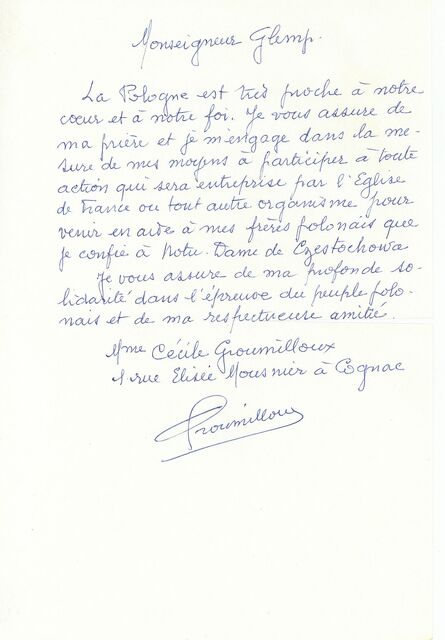 Monseigneur Glemp.
La Pologne est très proche à notre
coeur et à notre foi. Je vous assure de
ma prière et je m'engage dans la me-
sure de mes moyens à participer à toute
action qui sera entreprise par l'Eglise
de France ou tout autre organisme pour
venir en aide à mes frères polonais que
je confie à Notre. Dame de Czestochowa
Je vous assure de ma profonde so-
lidarité dans l'épreuve du peuple polo-
nais et de ma respectueuse amitié.
Mme Cécile Groumilloux
1 rue Elisée Mousnier à Cognac
Groumilloux